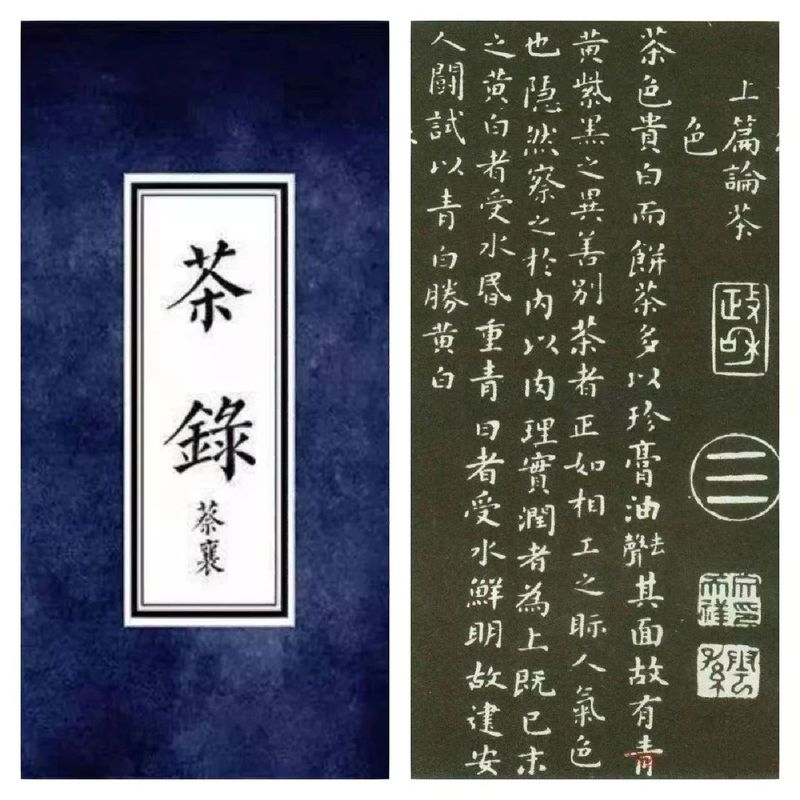 茶錄
蔡襄
上篇論茶
色
茶色貴白而餅茶多以珍膏油其面故有青
黃紫黑之異善別茶者正如相工之眎人氣色
也隱然察之於內以肉理實潤者為上既已末
之黃白者受水昬重青白者受水鮮明故建安
人鬭試以青白勝黃白
政和